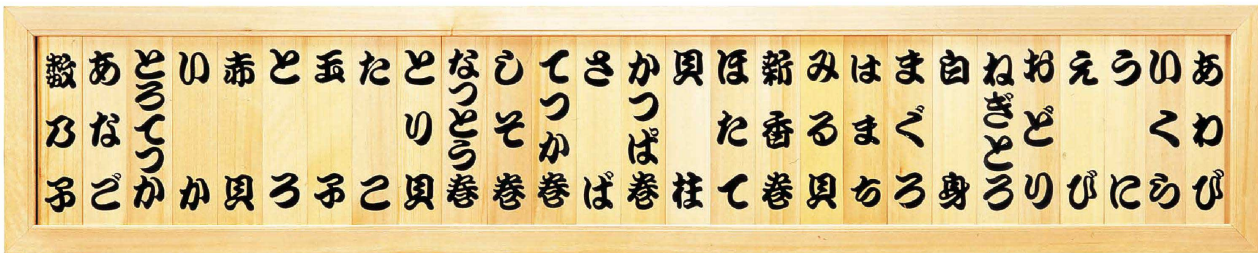 あわび
いくら
うに
えび
おどり
ねぎとろ
白身
まぐろ
はまち
みる貝
新香巻
ほたて
貝柱
かつぱ巻
さば
てつか巻
しそ巻
なつとう巻
とり貝
たこ
玉子
とろ
赤貝
いか
とろてつか
あなご
数乃子